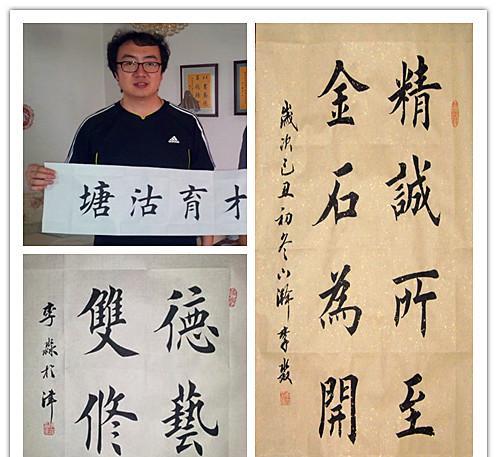 塘沽育才
adidas
德藝
雙修
李淼於津
精誠所至
金石為開
歲次己丑初冬李淼